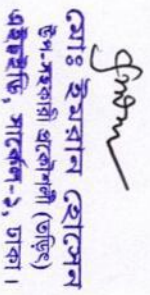 মোঃ ইমরান হোসেন
উপ-সহকারী প্রকৌশলী (তড়িৎ)
সার্কেল-১, ঢাকা।